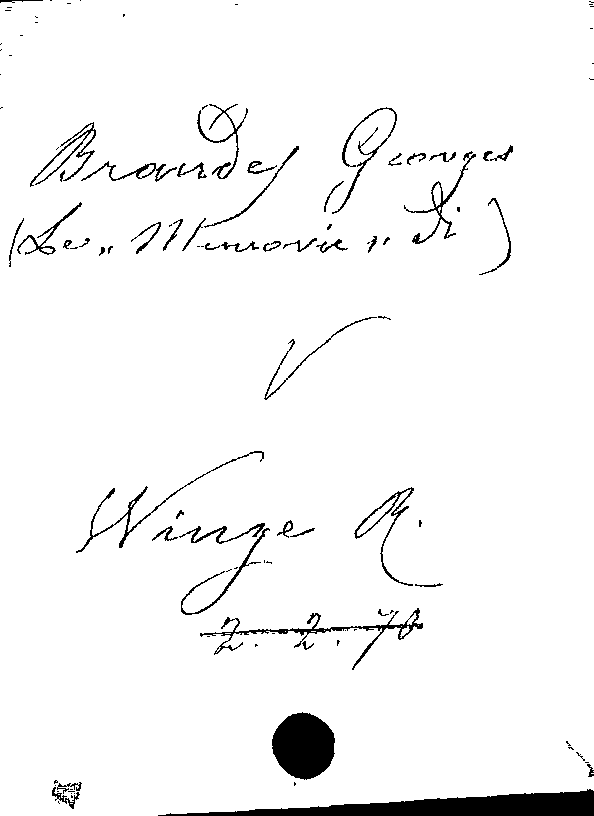 Brandes Georges
(Le „Memorie" di)
V
Winge R.
2. 2. 70